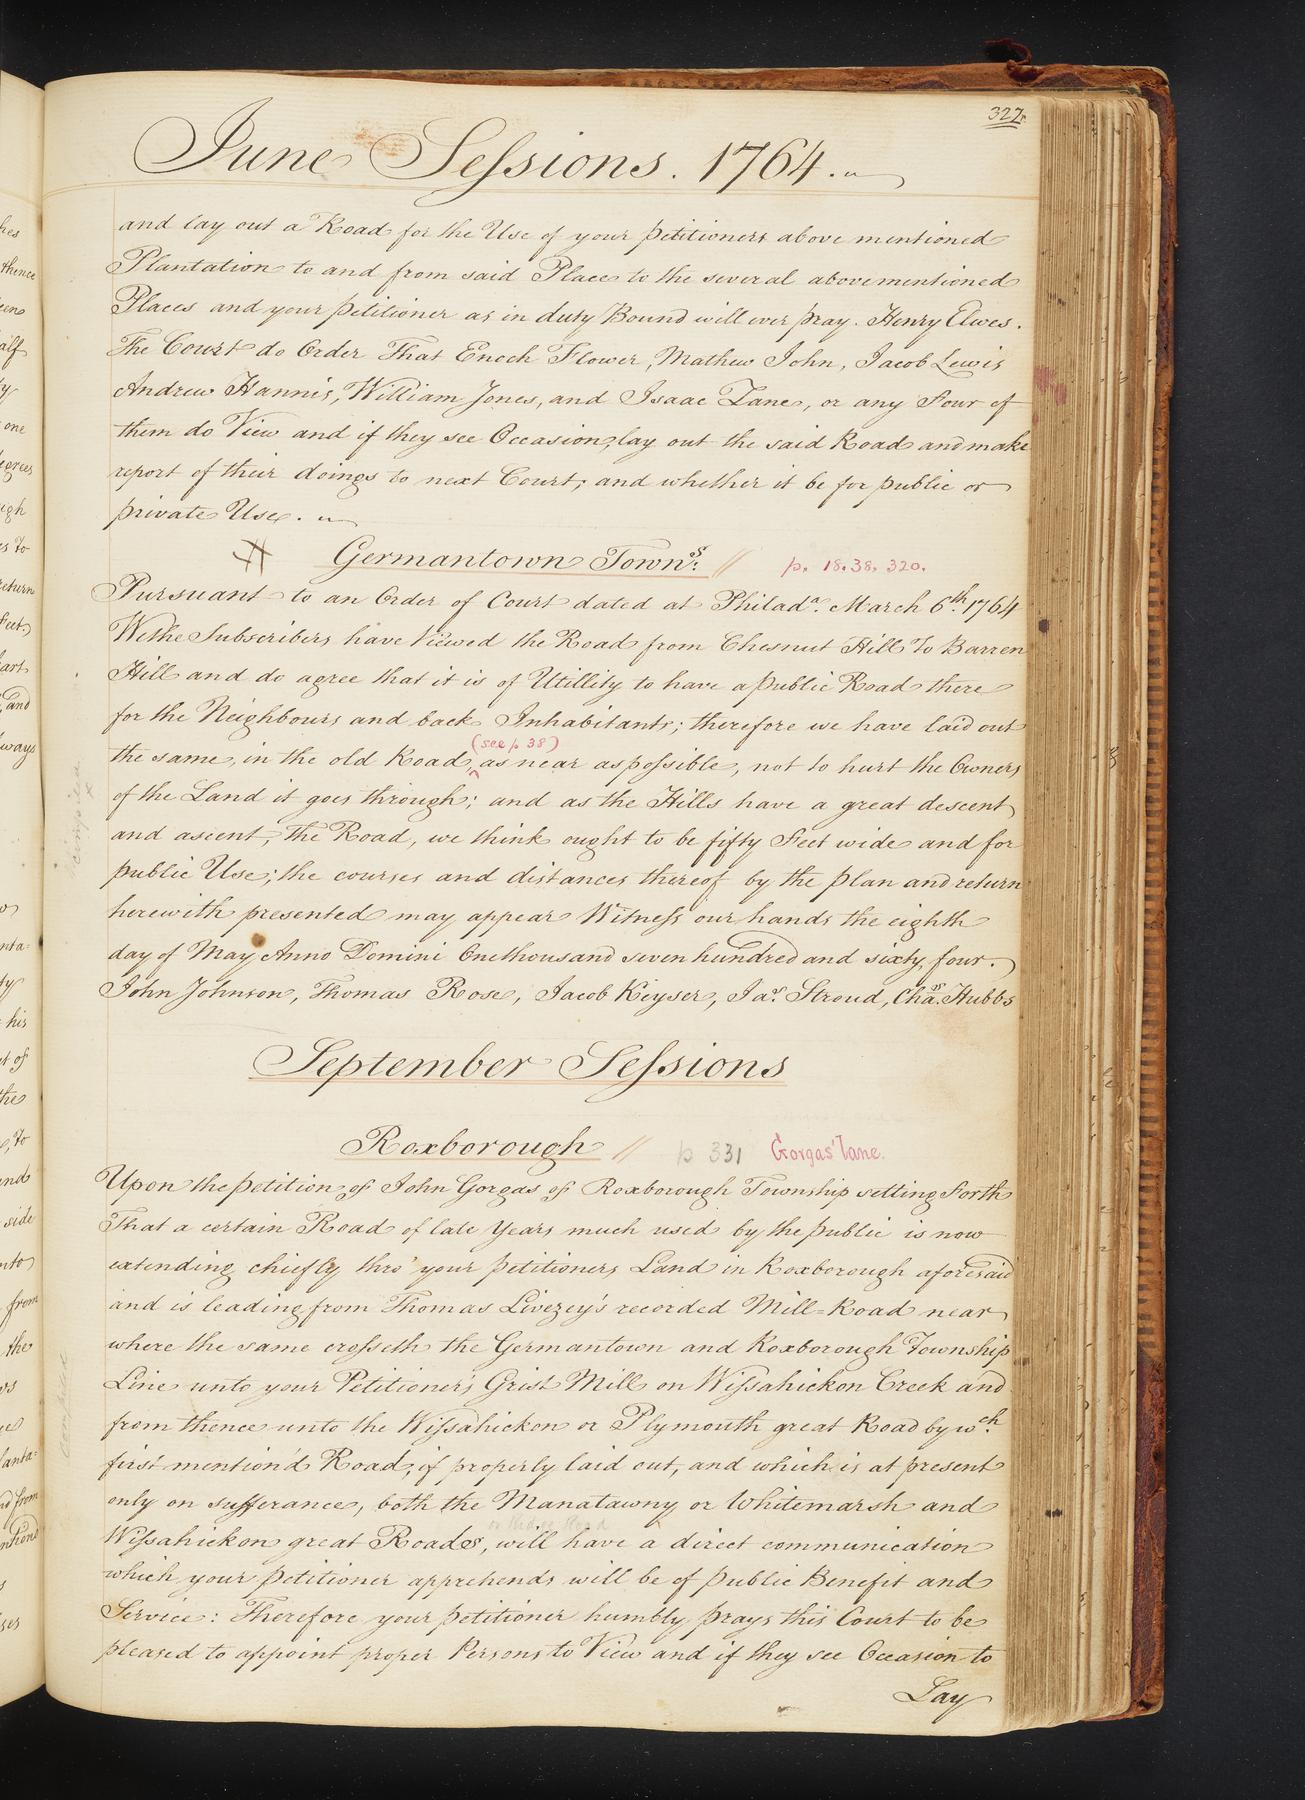 327.
June Sessions. 1764.
and lay out a Road for the Use of your petitioners above mentioned
Plantation to and from said Place to the several abovementioned
Places and your petitioner as in duty Bound will ever pray. Henry Elwes.
The Court do Order That Enoch Flower, Mathew John, Jacob Lewis
Andrew Hannis, William Jones, and Isaac Zane, or any Four of
them do View and if they see Occasion, lay out the said Road and make
report of their doings to next Court; and whether it be for public or
private Use.
Germantown Town:s // p. 18. 38. 320.
Pursuant to an Order of Court dated at Philad.a March 6.th 1764
We the Subscribers have Viewed the Road from Chesnut Hill To Barren
Hill and do agree that it is of Utillity to have a public Road there
for the Neighbours and back Inhabitants; therefore we have laid out
(see p 38)
the same, in the old Road, as near as possible, not to hurt the Owners
of the Land it goes through; and as the Hills have a great descent
and ascent, the Road, we think ought to be fifty Feet wide and for
public Use; the courses and distances thereof by the plan and return
herewith presented may appear Witness our hands the eighth
day of May Anno Domini One thousand seven hundred and sixty four.
John Johnson, Thomas Rose, Jacob Keyser, Ja.s Stroud, Cha.s Hubbs
September Sessions
Roxborough // p 331 Gorgas' Lane.
Upon the petition of John Gorgas of Roxborough Township setting Forth
That a certain Road of late Years much used by the public is now
extending chiefly thro' your petitioners Land in Roxborough aforesaid
and is leading from Thomas Livezey's recorded Mill=Road near
where the same crosseth the Germantown and Roxborough Township
Line unto your Petitioner's Grist Mill on Wissahickon Creek and
from thence unto the Wissahickon or Plymouth great Road by w.ch
first mention'd Road, if properly laid out, and which is at present
only on sufferance, both the Manatawny or Whitemarsh and
or Ridge Road
Wissahickon great Roads, will have a direct communication
which your petitioner apprehends will be of public Benefit and
Service: Therefore your petitioner humbly prays this Court to be
pleased to appoint proper Persons to View and if they see Occasion to
Lay